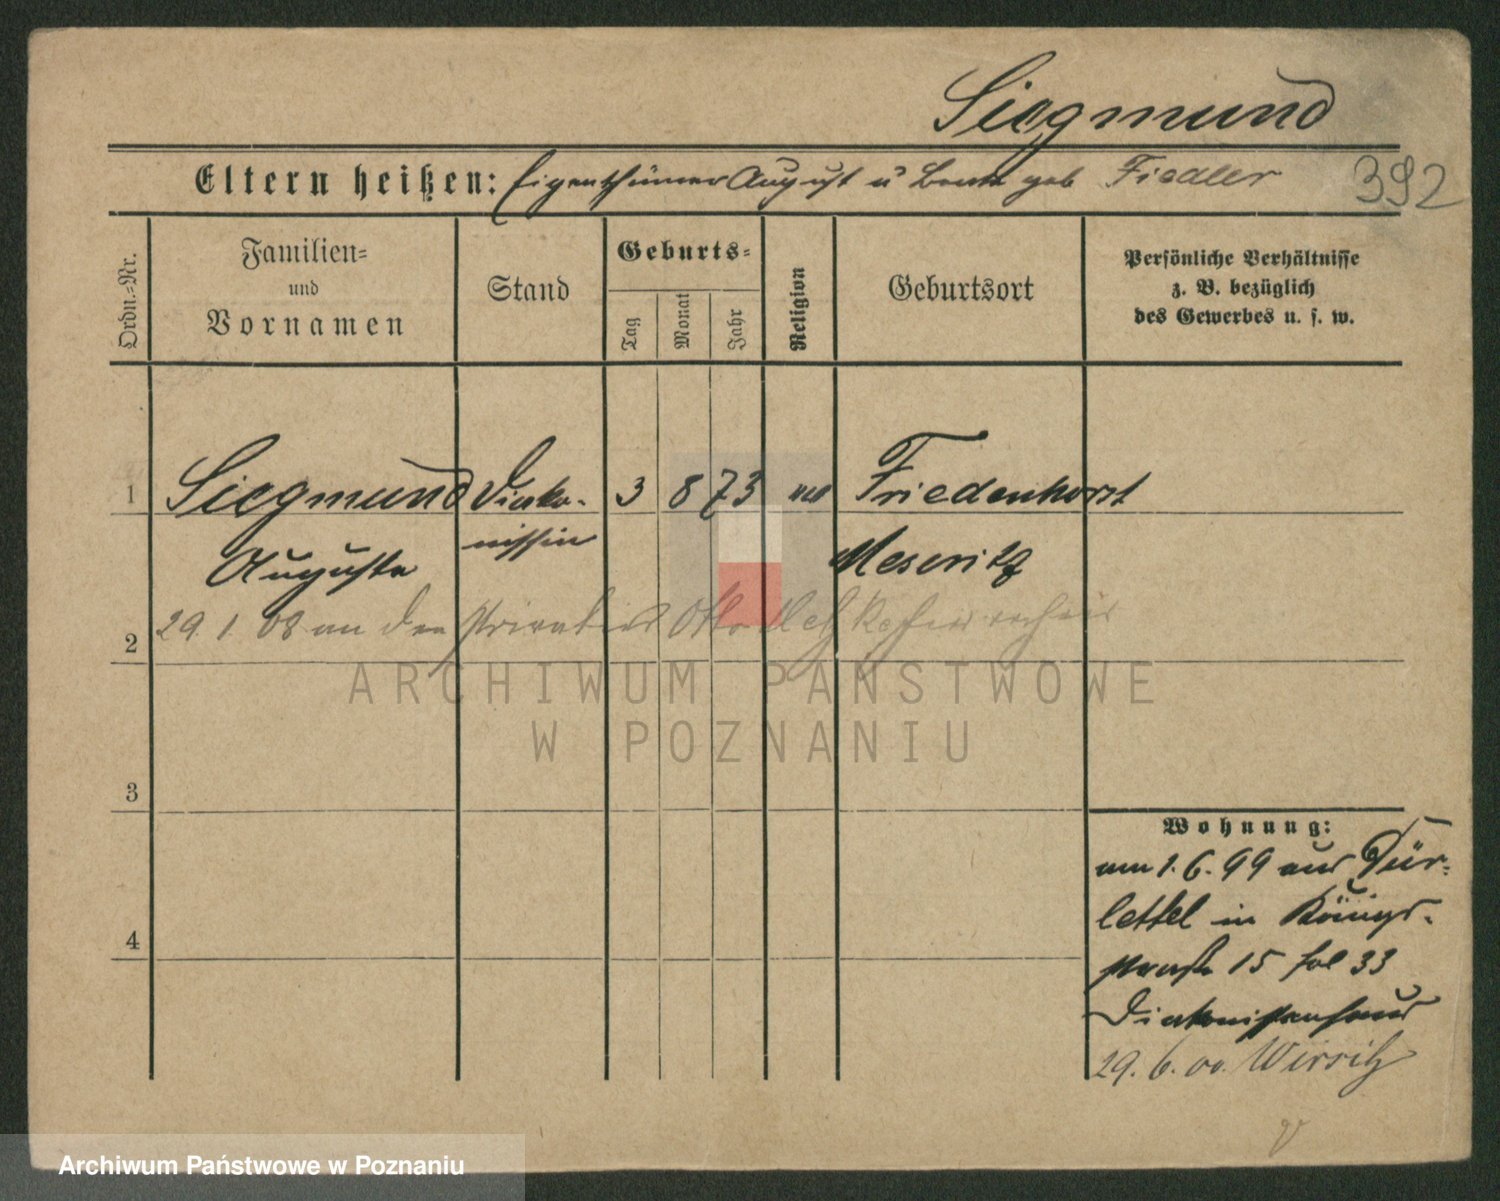 Siegmund
Eltern heißen: Eigenthümer August u geb Fiedler
392
Ordn.-Nr.
Familien-
und
Vornamen
Stand
Geburts-
Tag
Monat
Jahr
Religion
Geburtsort
Persönliche Verhältnisse
z. B. bezüglich
des Gewerbes u. s. w.
1 Siegmund Diako- 3 8 73 ev Friedenhorst
Auguste nissin Meseritz
29. 1. 08 an den Otto
2
ARCHIWUM PAŃSTWOWE
W POZNANIU
3
Wohnung:
am 1. 6. 99 aus Dür-
lettel in Königs-
4
straße 15 fol 33
Diakonissenhaus
29. 6. 00. Wirsitz
Archiwum Państwowe w Poznaniu